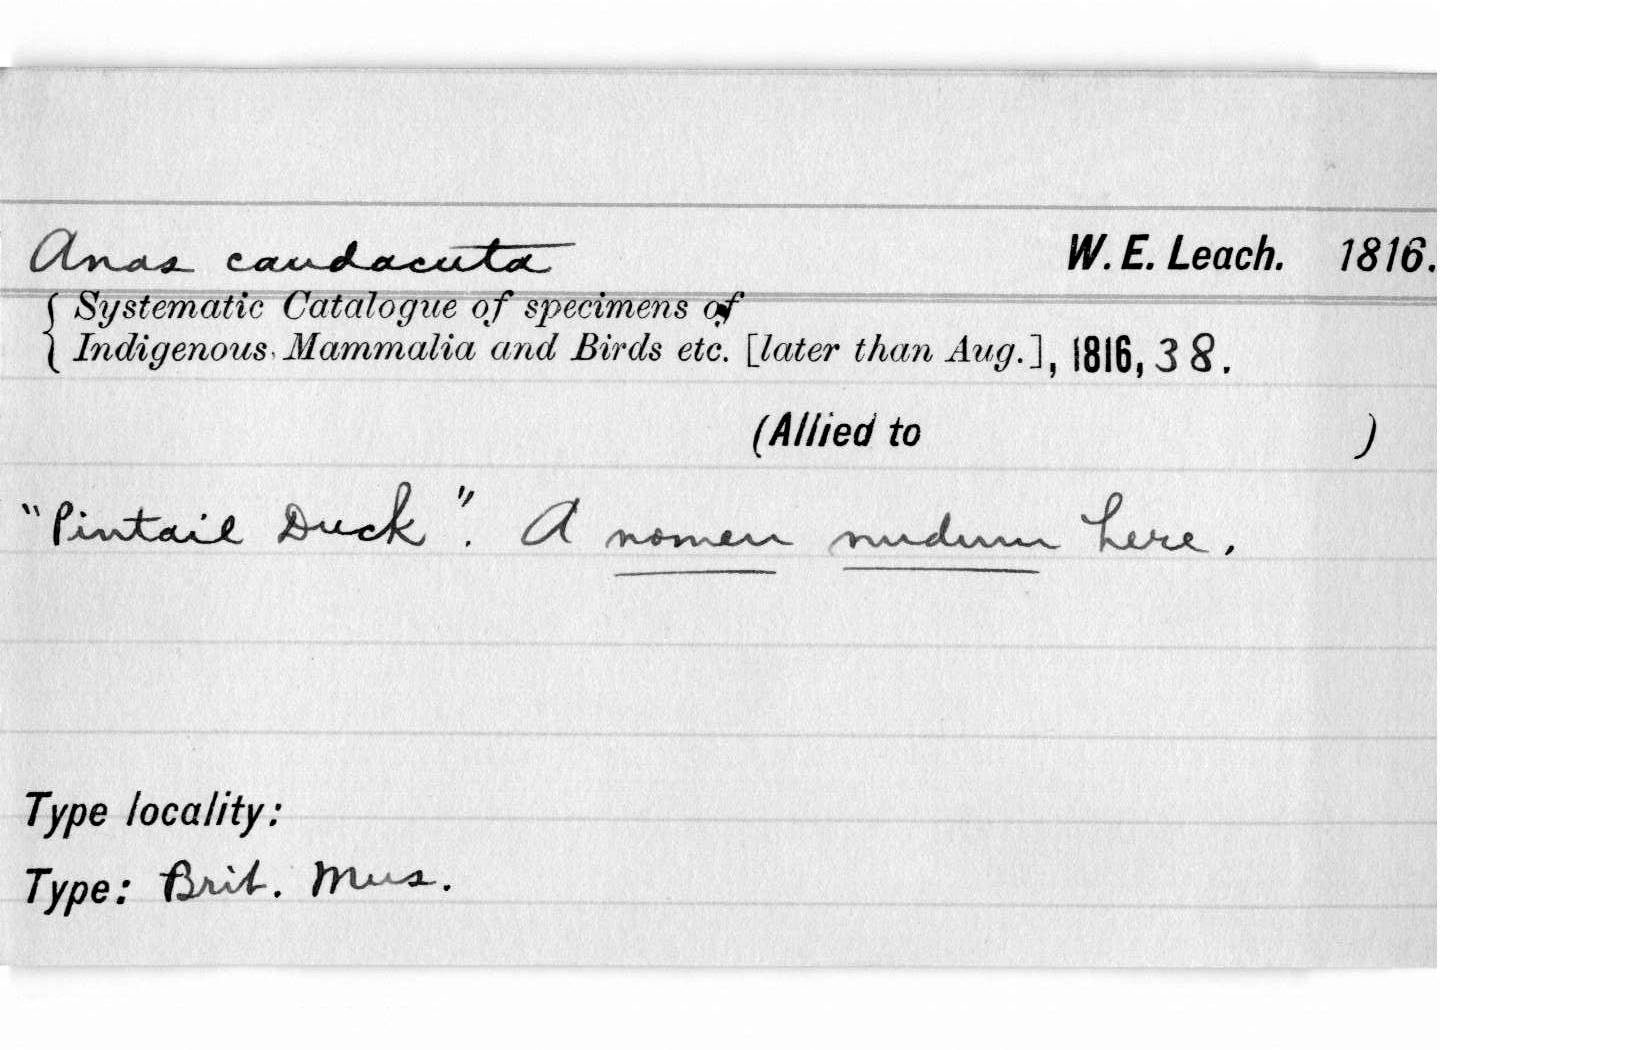 Anas caudacuta W. E. Leach. 1816.
{ Systematic Catalogue of specimens of
Indigenous Mammalia and Birds etc. [later than Aug.], 1816, 38.
(Allied to )
"Pintail Duck". A nomen nudum here.
Type locality:
Type: Brit. Mus.